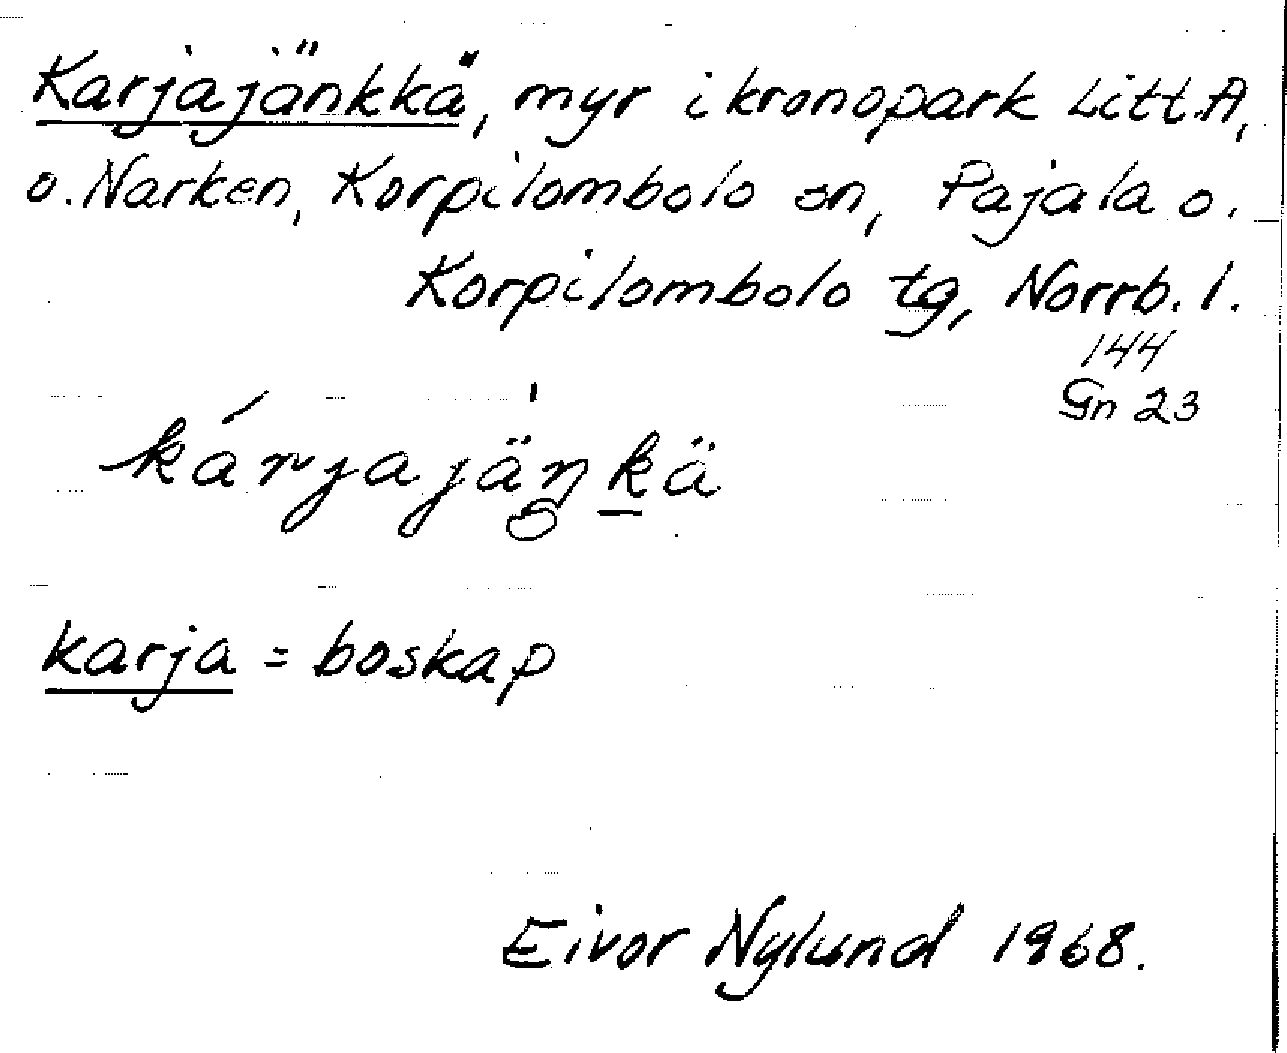 Karjajänkkä, myr i kronopark Litt A,
o. Narken, Korpilombolo sn, Pajala o.
Korpilombolo tg, Norrb. l.
144
Gn 23
kárjajäŋkä
karja = boskap
Eivor Nylund 1968.